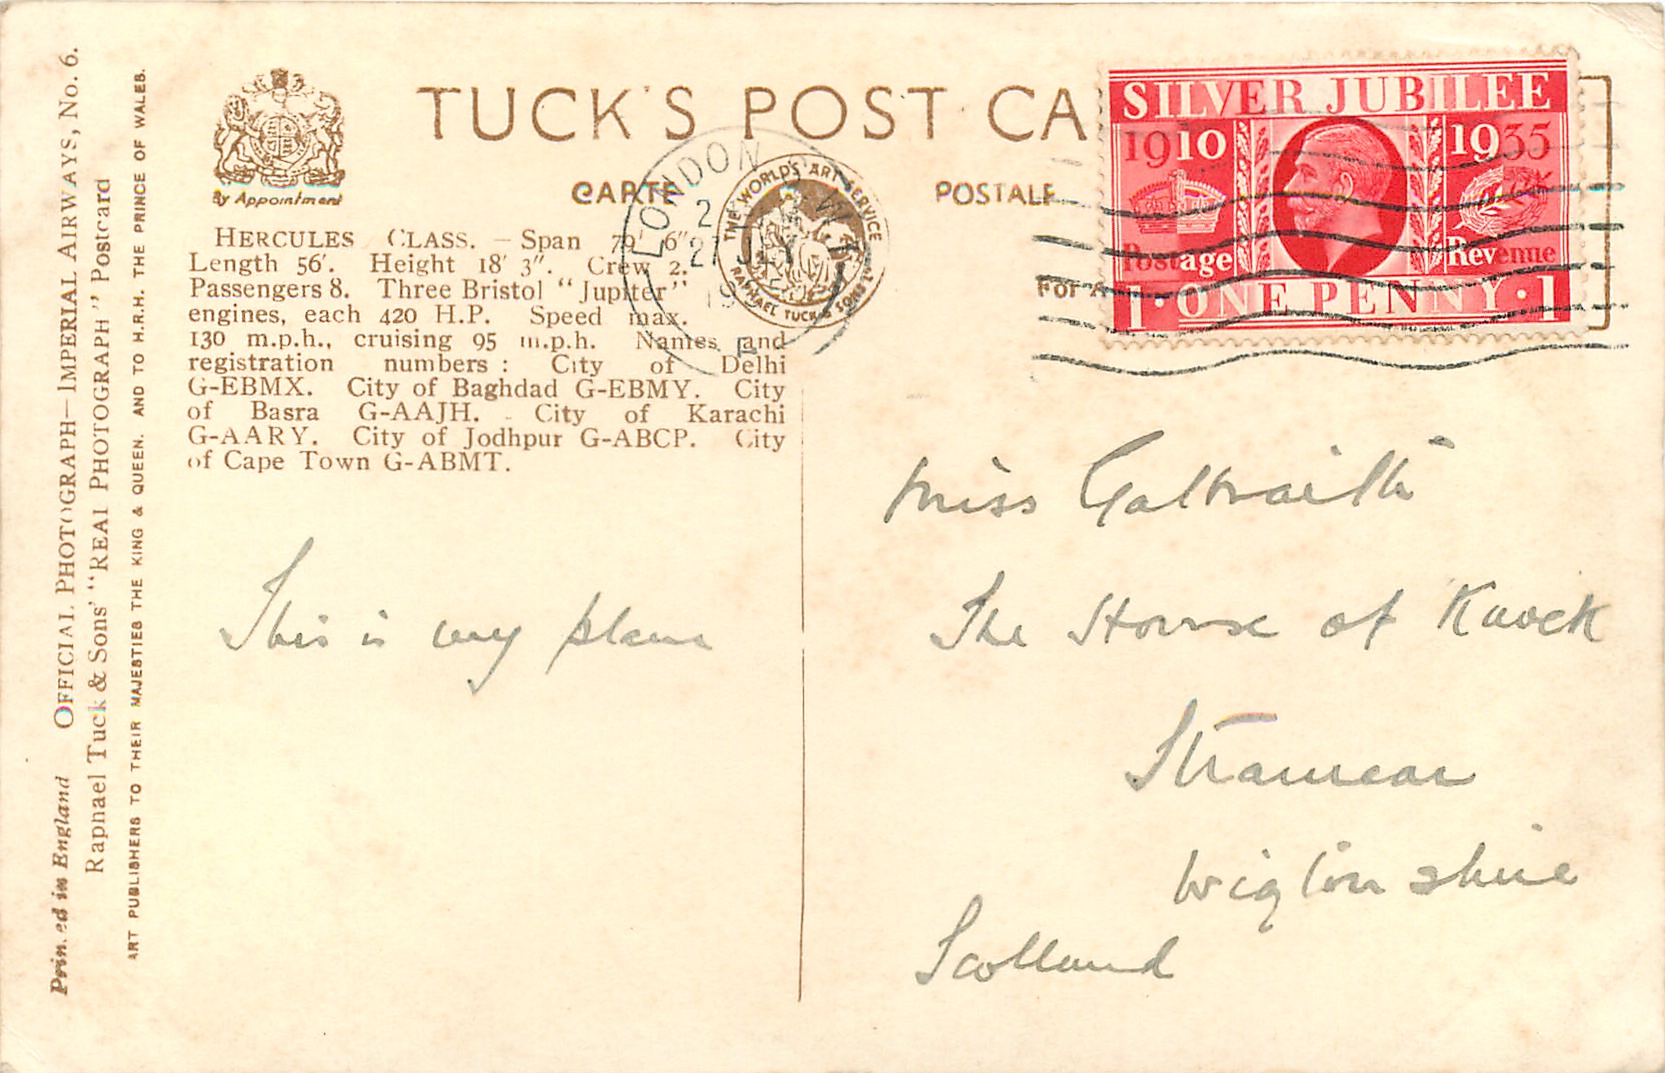 TUCK'S POST CA
By Appointment
CARTE
POSTALE
HERCULES CLASS. — Span 79' 6"
Length 56'. Height 18' 3". Crew 2.
Passengers 8. Three Bristol "Jupiter"
engines, each 420 H.P. Speed max.
130 m.p.h., cruising 95 m.p.h. Names and
registration numbers: City of Delhi
G-EBMX. City of Baghdad G-EBMY. City
of Basra G-AAJH. City of Karachi
G-AARY. City of Jodhpur G-ABCP. City
of Cape Town G-ABMT.
LONDON
27 JLY
THE WORLD'S ART SERVICE
RAPHAEL TUCK & SONS LTD
For A
SILVER JUBILEE
1910 1935
Postage Revenue
1·ONE PENNY·1
This is my plane
Miss Galbraith
The House of Knock
Stranraer
Wigtonshire
Scotland
Printed in England OFFICIAL PHOTOGRAPH—IMPERIAL AIRWAYS, No. 6.
Raphael Tuck & Sons' "REAL PHOTOGRAPH" Postcard
ART PUBLISHERS TO THEIR MAJESTIES THE KING & QUEEN, AND TO H.R.H. THE PRINCE OF WALES.